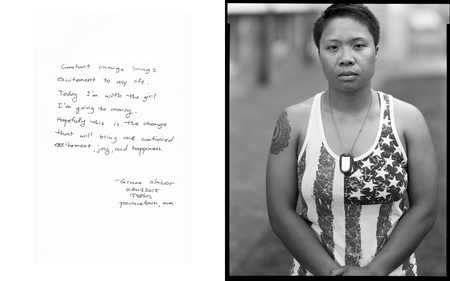 Constant change brings
excitement to my life.
Today I'm with the girl
I'm going to marry.
Hopefully this is the change
that will bring me continued
excitement, joy, and happiness.
-Grace
Provincetown, MA